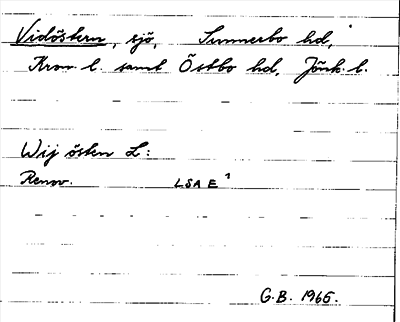 Vidöstern, sjö, Sunnerbo hd,
Kron. l. samt Östbo hd, Jönk. l.
Wij östen L:
Renov. LSA E¹
G.B. 1965.